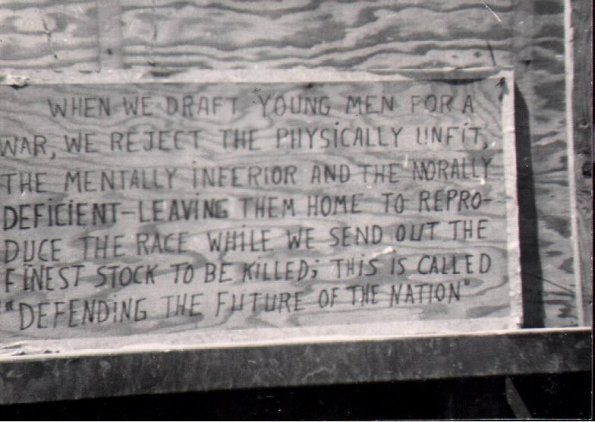 WHEN WE DRAFT YOUNG MEN FOR A
WAR, WE REJECT THE PHYSICALLY UNFIT,
THE MENTALLY INFERIOR AND THE MORALLY
DEFICIENT-LEAVING THEM HOME TO REPRO-
DUCE THE RACE WHILE WE SEND OUT THE
FINEST STOCK TO BE KILLED; THIS IS CALLED
"DEFENDING THE FUTURE OF THE NATION"